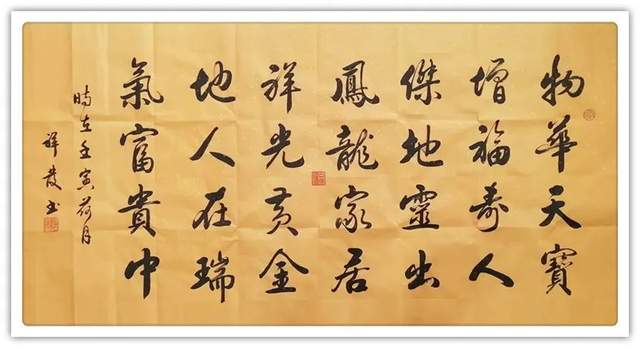 物華天寶
增福壽人
傑地靈出
鳳龍家居
祥光黃金
地人在瑞
氣富貴中
時在壬寅荷月
祥發書